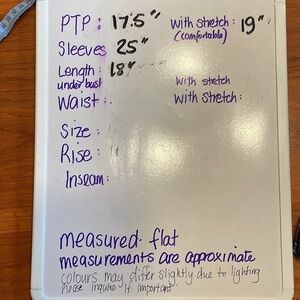 PTP : 17.5" with stretch : 19"
(comfortable)
Sleeves 25"
Length : 18"
under bust with stretch
Waist : with stretch :
Size :
Rise :
Inseam :
measured flat
measurements are approximate
colours may differ slightly due to lighting
Please inquire if important